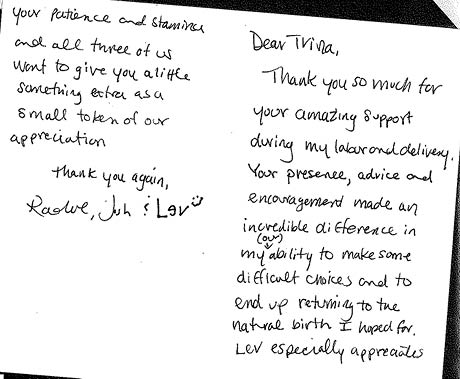 Dear Trina,
Thank you so much for
your amazing support
during my labor and delivery.
Your presence, advice and
encouragement made an
incredible difference in
(our)
my ability to make some
difficult choices and to
end up returning to the
natural birth I hoped for.
Lev especially appreciates
your patience and stamina
and all three of us
want to give you a little
something extra as a
small token of our
appreciation
Thank you again,
& Lev